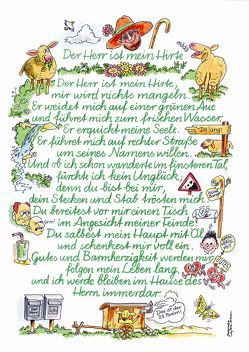 Der Herr ist mein Hirte
Der Herr ist mein Hirte,
mir wird nichts mangeln.
Er weidet mich auf einer grünen Aue
und führet mich zum frischen Wasser.
Er erquicket meine Seele.
Er führet mich auf rechter Straße
um seines Namens willen.
Da lang!
Und ob ich schon wanderte im finsteren Tal,
fürchte ich kein Unglück,
denn du bist bei mir,
dein Stecken und Stab trösten mich.
Du bereitest vor mir einen Tisch
im Angesicht meiner Feinde.
Du salbest mein Haupt mit Öl
und schenkest mir voll ein.
Gutes und Barmherzigkeit werden mir
folgen mein Leben lang,
und ich werde bleiben im Hause des
Herrn immerdar.